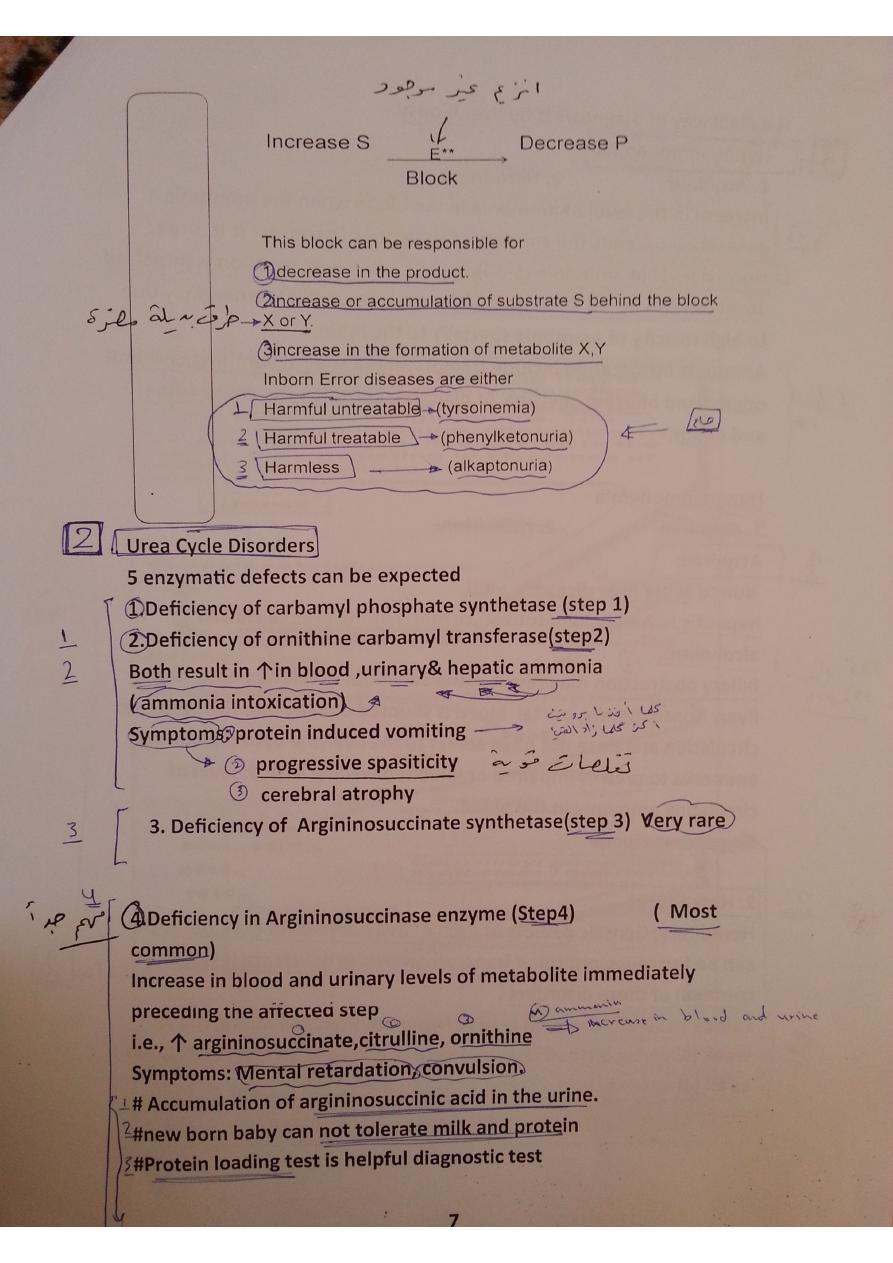 انزيم غير موجود
Increase S E** Decrease P
Block
This block can be responsible for
1)decrease in the product.
2increase or accumulation of substrate S behind the block
طرق بديلة مضرة → X or Y.
3increase in the formation of metabolite X,Y
Inborn Error diseases are either
1 Harmful untreatable → (tyrsoinemia)
2 Harmful treatable → (phenylketonuria)
هام
3 Harmless → (alkaptonuria)
2 Urea Cycle Disorders
5 enzymatic defects can be expected
1.Deficiency of carbamyl phosphate synthetase (step 1)
1 2.Deficiency of ornithine carbamyl transferase(step2)
2 Both result in ↑in blood ,urinary& hepatic ammonia
(ammonia intoxication)
Symptoms: protein induced vomiting → كلما أخذنا بروتين
اكثر كلما زاد القيء
② progressive spasiticity تقلصات قوية
③ cerebral atrophy
3 3. Deficiency of Argininosuccinate synthetase(step 3) Very rare
4
مهم جداً 4.Deficiency in Argininosuccinase enzyme (Step4) ( Most
common)
Increase in blood and urinary levels of metabolite immediately
preceding the affected step ammonia
→ increase in blood and urine
i.e., ↑ argininosuccinate,citrulline, ornithine
Symptoms: Mental retardation,convulsion.
1 # Accumulation of argininosuccinic acid in the urine.
2 #new born baby can not tolerate milk and protein
3 #Protein loading test is helpful diagnostic test
7